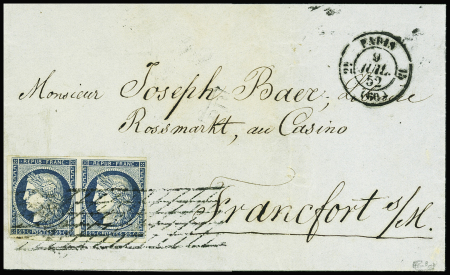 PARIS
9
JUIL.
52
(60)
REPUB. FRANC. REPUB. FRANC.
25 C POSTES 25 C 25 C POSTES 25 C
Monsieur Joseph Baer,
Rossmarkt, au Casino
Francfort s/M.